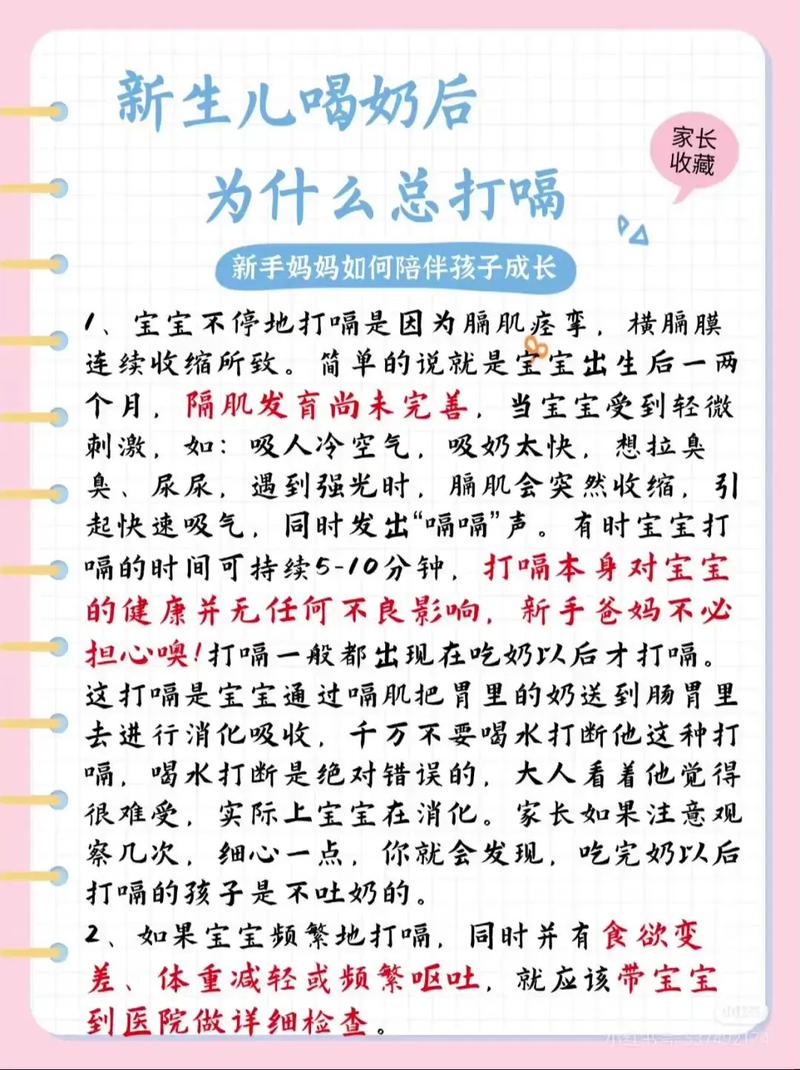 新生儿喝奶后
为什么总打嗝
家长
收藏
新手妈妈如何陪伴孩子成长
1、宝宝不停地打嗝是因为膈肌痉挛，横膈膜
连续收缩所致。简单的说就是宝宝出生后一两
个月，隔肌发育尚未完善，当宝宝受到轻微
刺激，如：吸人冷空气，吸奶太快，想拉臭
臭、尿尿，遇到强光时，膈肌会突然收缩，引
起快速吸气，同时发出“嗝嗝”声。有时宝宝打
嗝的时间可持续5-10分钟，打嗝本身对宝宝
的健康并无任何不良影响，新手爸妈不必
担心噢！打嗝一般都出现在吃奶以后才打嗝。
这打嗝是宝宝通过嗝肌把胃里的奶送到肠胃里
去进行消化吸收，千万不要喝水打断他这种打
嗝，喝水打断是绝对错误的，大人看着他觉得
很难受，实际上宝宝在消化。家长如果注意观
察几次，细心一点，你就会发现，吃完奶以后
打嗝的孩子是不吐奶的。
2、如果宝宝频繁地打嗝，同时并有食欲变
差、体重减轻或频繁呕吐，就应该带宝宝
到医院做详细检查。